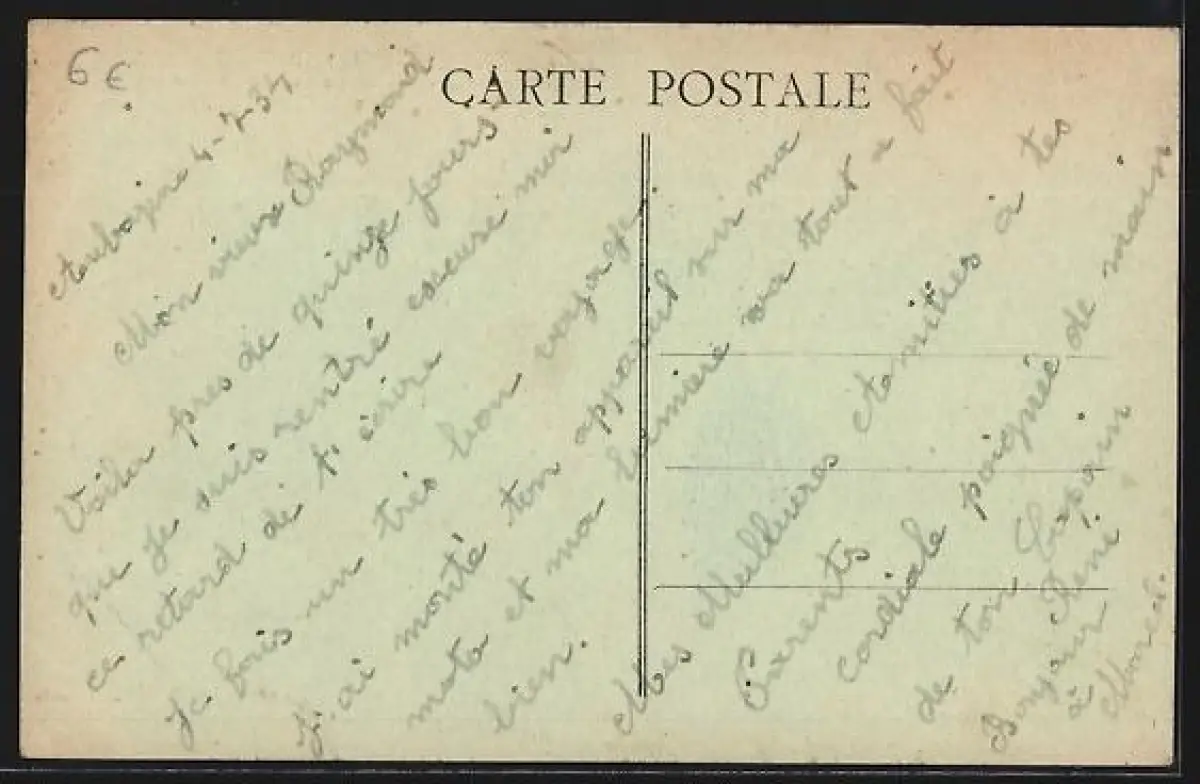 6 €
CARTE POSTALE
Aubagne 4-7-37
Mon vieux Raymond
Voila pres de quinze jours
que je suis rentré excuse moi
ce retard de t'ecrire
Je fais un très bon voyage
J'ai monté ton appareil sur ma
moto et ma lumière va tout a fait
bien.
Mes Meilleures Amitiés à tes
Parents
cordiale poignée de main
de ton Copain
René
Bonjour
à